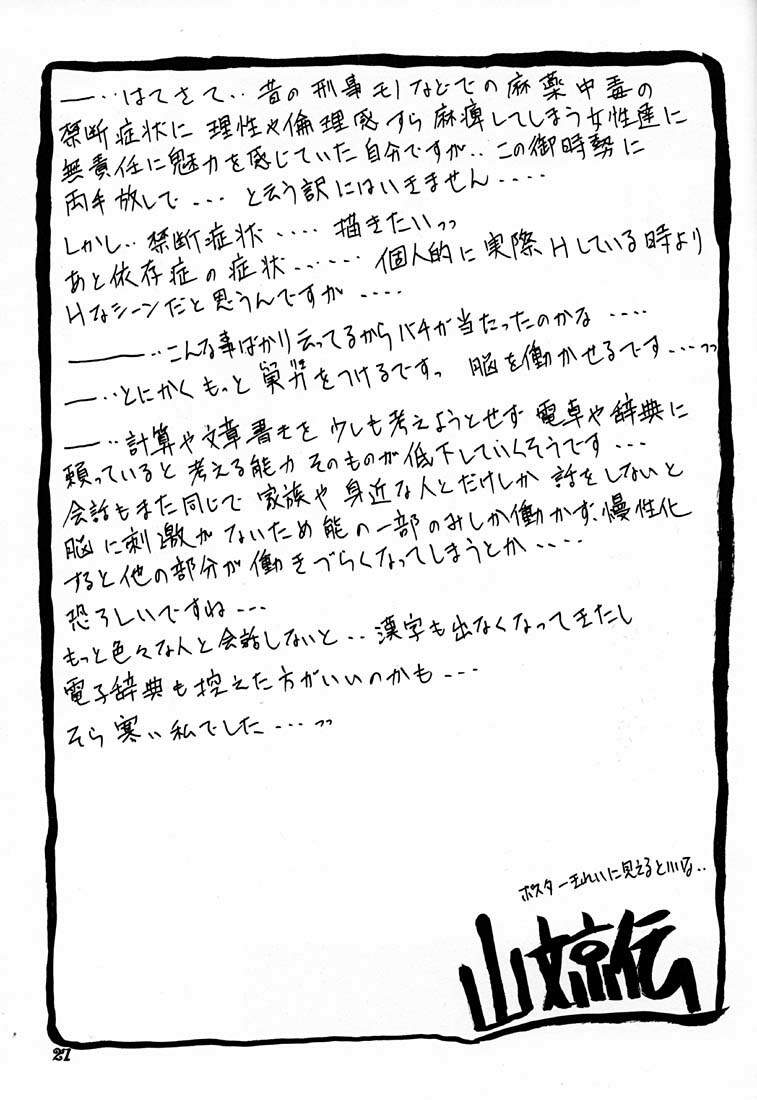 ―‥はてさて‥昔の刑事モノなどでの麻薬中毒の
禁断症状に理性や倫理感すら麻痺してしまう女性達に
無責任に魅力を感じていた自分ですが‥この御時勢に
両手放しで---と云う訳にはいきません‥‥
しかし‥禁断症状‥‥描きたいっっ
あと依存症の症状‥‥‥個人的に実際Hしている時より
Hなシーンだと思うんですが‥‥
―――‥こんな事ばかり云ってるからバチが当たったのかな‥‥
―‥とにかくもっと をつけるですっ 脳を働かせるです---っっ
―‥計算や文章書きを少しも考えようとせず電卓や辞典に
頼っていると考える能力そのものが低下していくそうです---
会話もまた同じで家族や身近な人とだけしか話をしないと
脳に刺激がないため能の一部のみしか働かず、慢性化
すると他の部分が働きづらくなってしまうとか‥‥
恐ろしいですね---
もっと色々な人と会話しないと‥漢字も出なくなってきたし
電子辞典も控えた方がいいのかも---
そら寒い私でした---っっ
ポスターきれいに見えるといいな‥
山文京伝
27